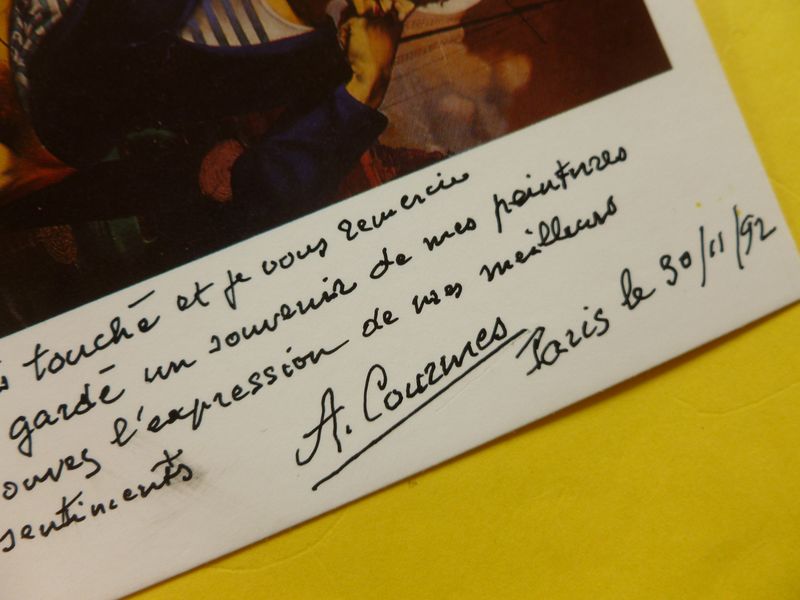 touché et je vous remercie
gardé un souvenir de mes peintures
l'expression de mes meilleurs
sentiments
A. Courmes
Paris le 30/11/92